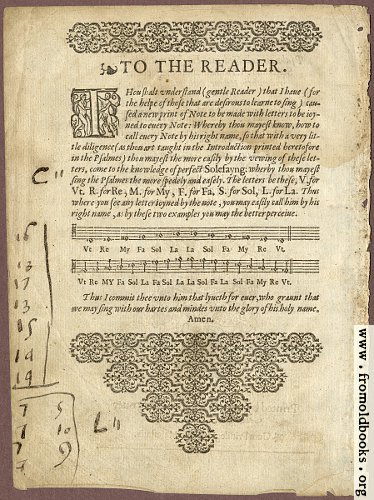 TO THE READER.
THou shalt vnderstand (gentle Reader) that I haue (for
the helpe of those that are desirous to learne to sing) cau-
sed a new print of Note to be made with letters to be ioy-
ned to euery Note: Whereby thou mayest know, how to
call euery Note by his right name, so that with a very lit-
tle diligence (as thou art taught in the Introduction printed heretofore
in the Psalmes) thou mayest the more easily by the vewing of these let-
ters, come to the knowledge of perfect Solefayng: wherby thou mayest
sing the Psalmes the more spedely and easely. The letters be these, V. for
Vt. R. for Re, M. for My, F. for Fa, S. for Sol, L. for La. Thus
where you see any letter ioyned by the note, you may easily call him by his
right name, as by these two examples you may the better perceiue.
Vt Re My Fa Sol La La Sol Fa My Re Vt.
Vt Re MY Fa Sol La Fa Sol La La Sol Fa La Sol Fa My Re Vt.
Thus I commit thee vnto him that lyueth for euer, who graunt that
we may sing with our hartes and mindes vnto the glory of his holy name.
Amen.
C"
13
17
13
15
14
19
7 5
7 10
7 9
L"
www.fromoldbooks.org